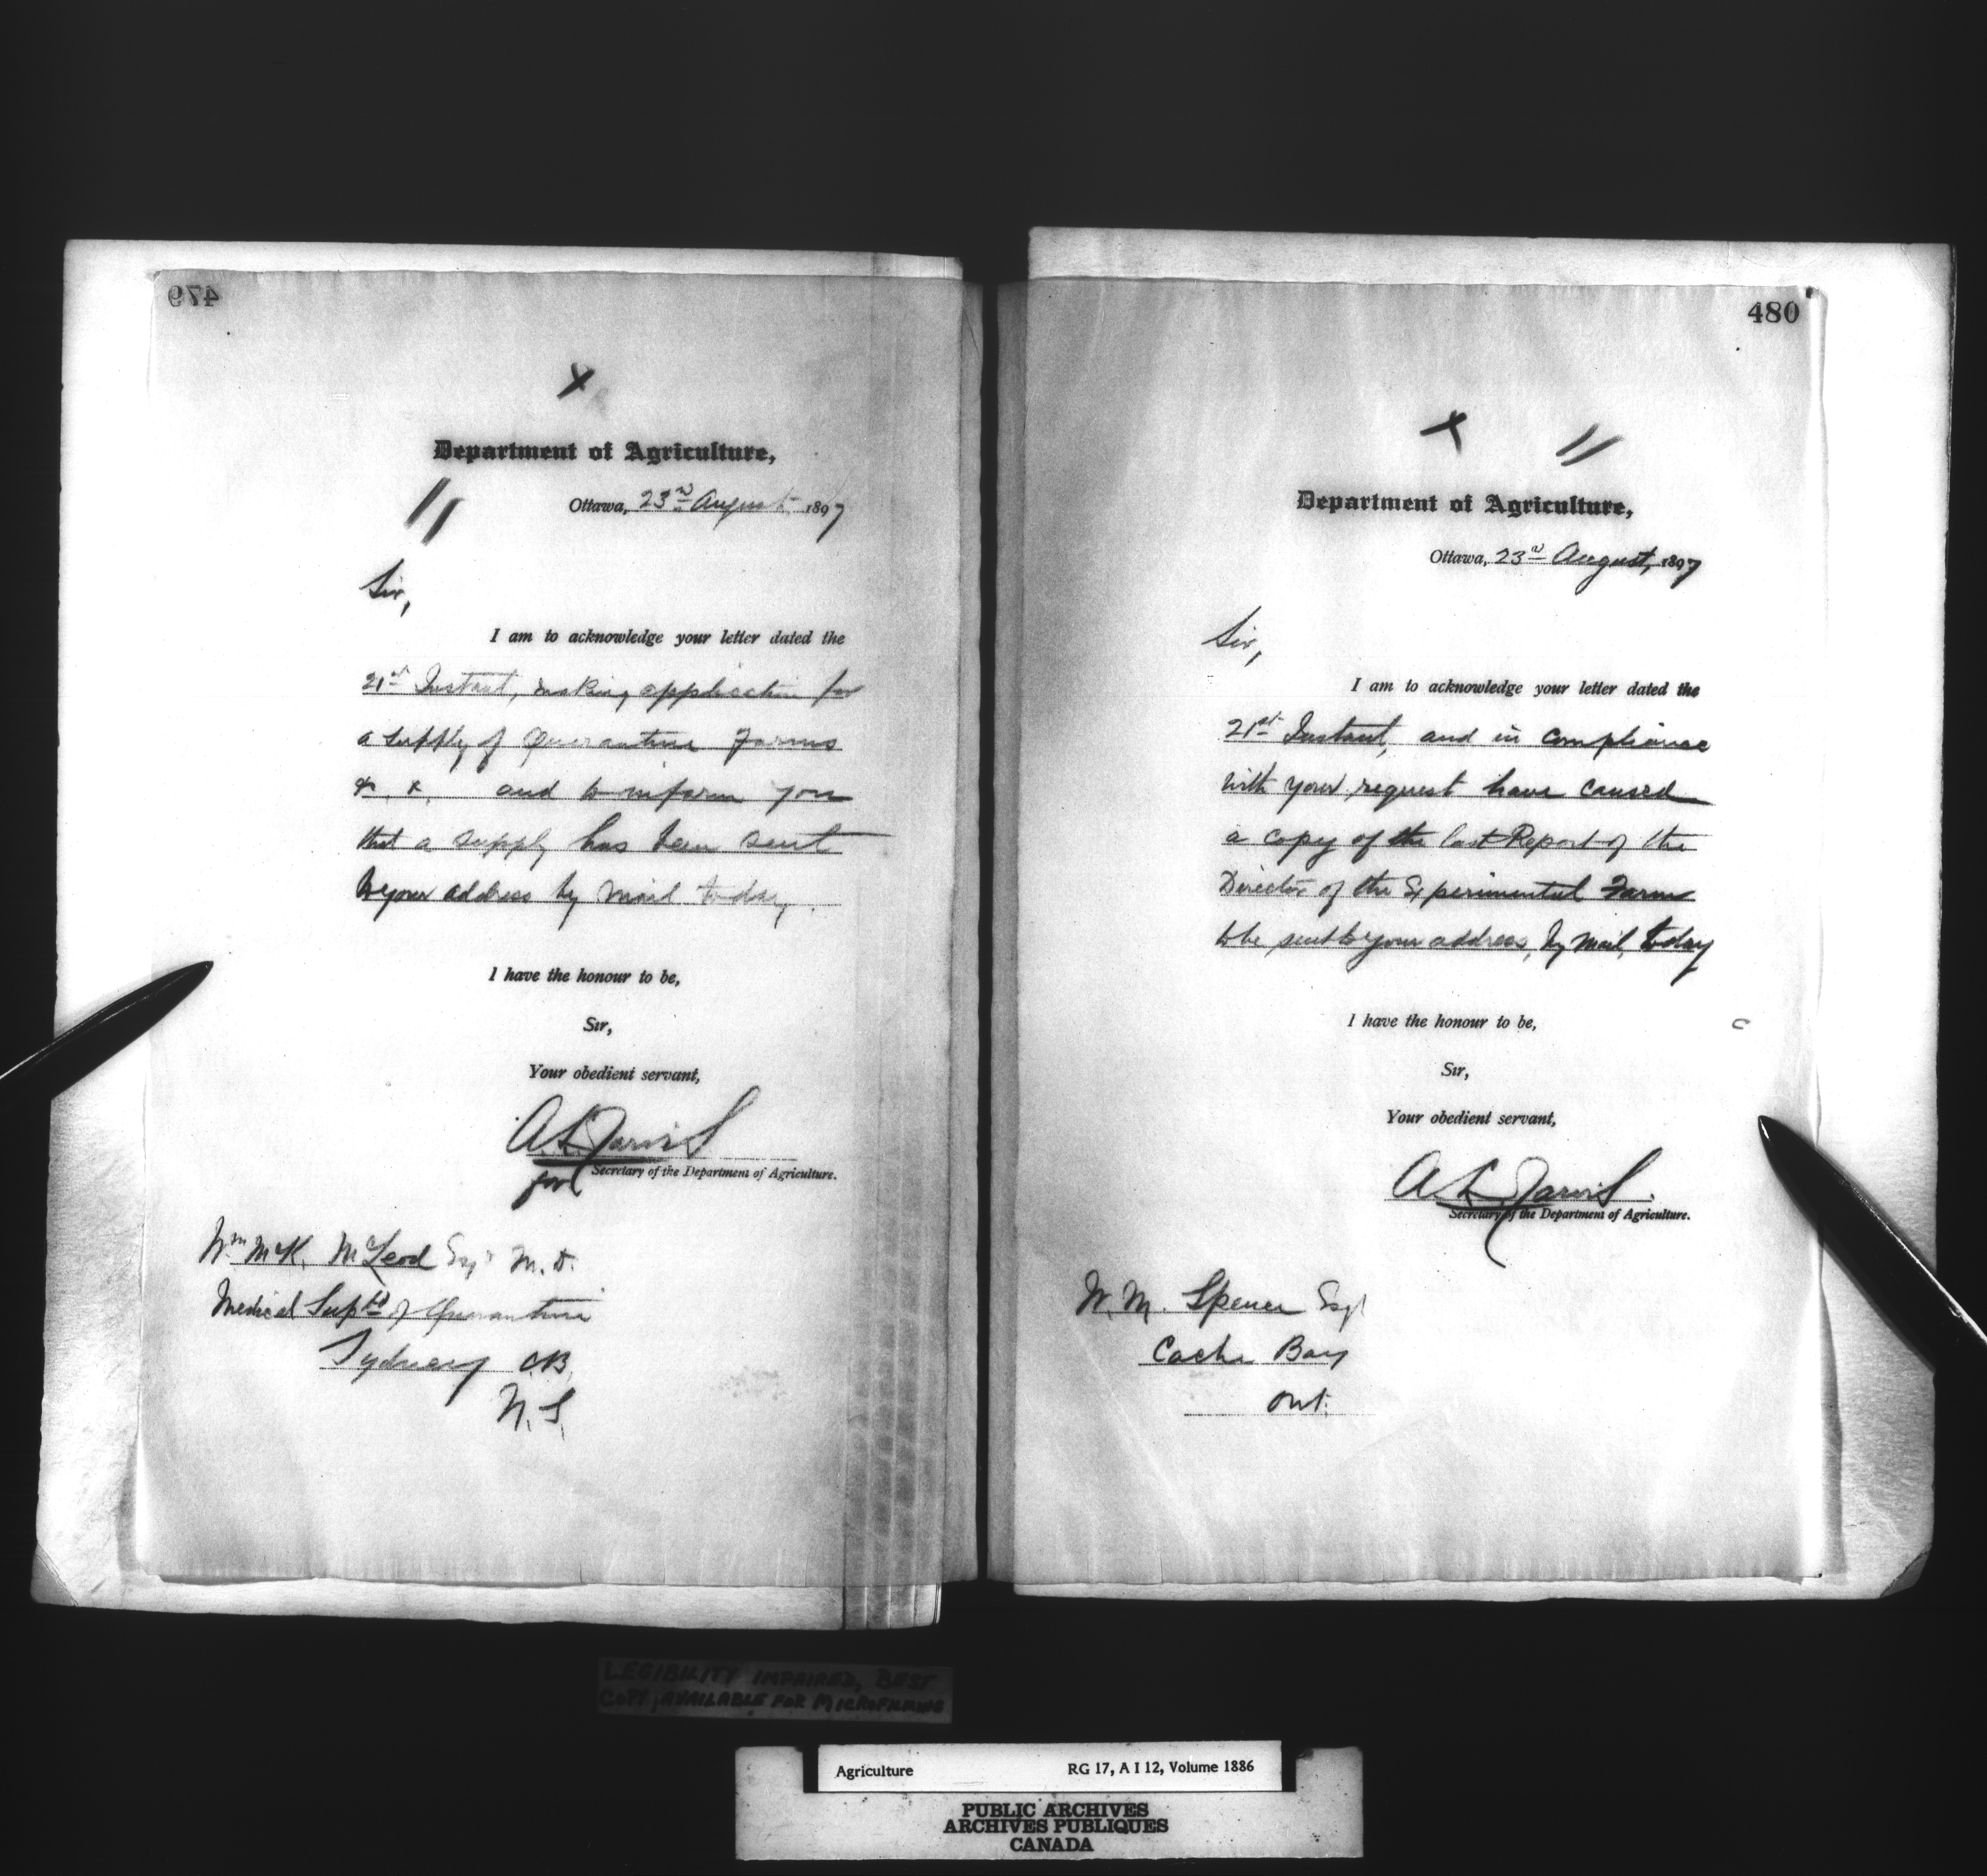 479
Department of Agriculture,
Ottawa, 23rd August 1897
Sir,
I am to acknowledge your letter dated the
21st Instant, making application for
a supply of Quarantine Forms
&. &. and to inform you
that a supply has been sent
to your address by mail today.
I have the honour to be,
Sir,
Your obedient servant,
A L Jarvis
for Secretary of the Department of Agriculture.
Wm McK. McLeod Esqr M.D.
Medical Suptd of Quarantine
Sydney C.B.
N.S.
480
Department of Agriculture,
Ottawa, 23rd August, 1897
Sir,
I am to acknowledge your letter dated the
21st Instant, and in compliance
with your request have caused
a copy of the last Report of the
Director of the Experimental Farm
to be sent to your address, by mail, today
I have the honour to be,
Sir,
Your obedient servant,
A. L. Jarvis.
Secretary of the Department of Agriculture.
W. M. Spencer Esqr
Cache Bay
Ont.
LEGIBILITY IMPAIRED, BEST
COPY AVAILABLE FOR MICROFILMING
Agriculture RG 17, A I 12, Volume 1886
PUBLIC ARCHIVES
ARCHIVES PUBLIQUES
CANADA